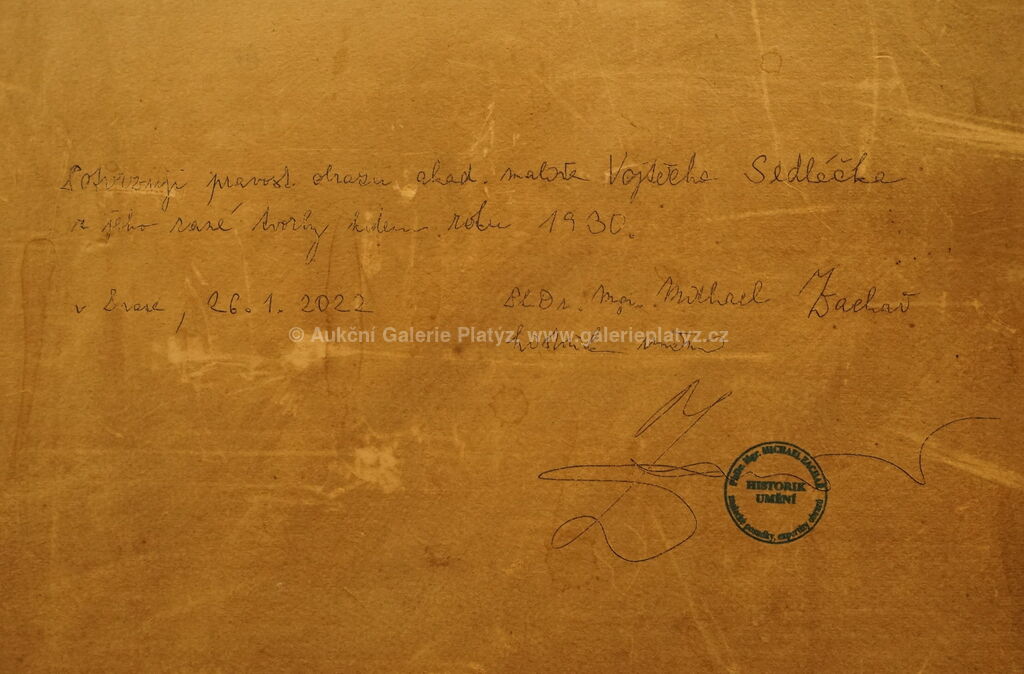 Potvrzuji pravost obrazu akad. malíře Vojtěcha Sedláčka
z jeho rané tvorby kolem roku 1930.
v Praze, 26.1.2022
PhDr. Mgr. Michael Zachař
historik umění
© Aukční Galerie Platýz, www.galerieplatyz.cz
PhDr. Mgr. MICHAEL ZACHAŘ
HISTORIK
UMĚNÍ
znalecké posudky, expertizy obrazů